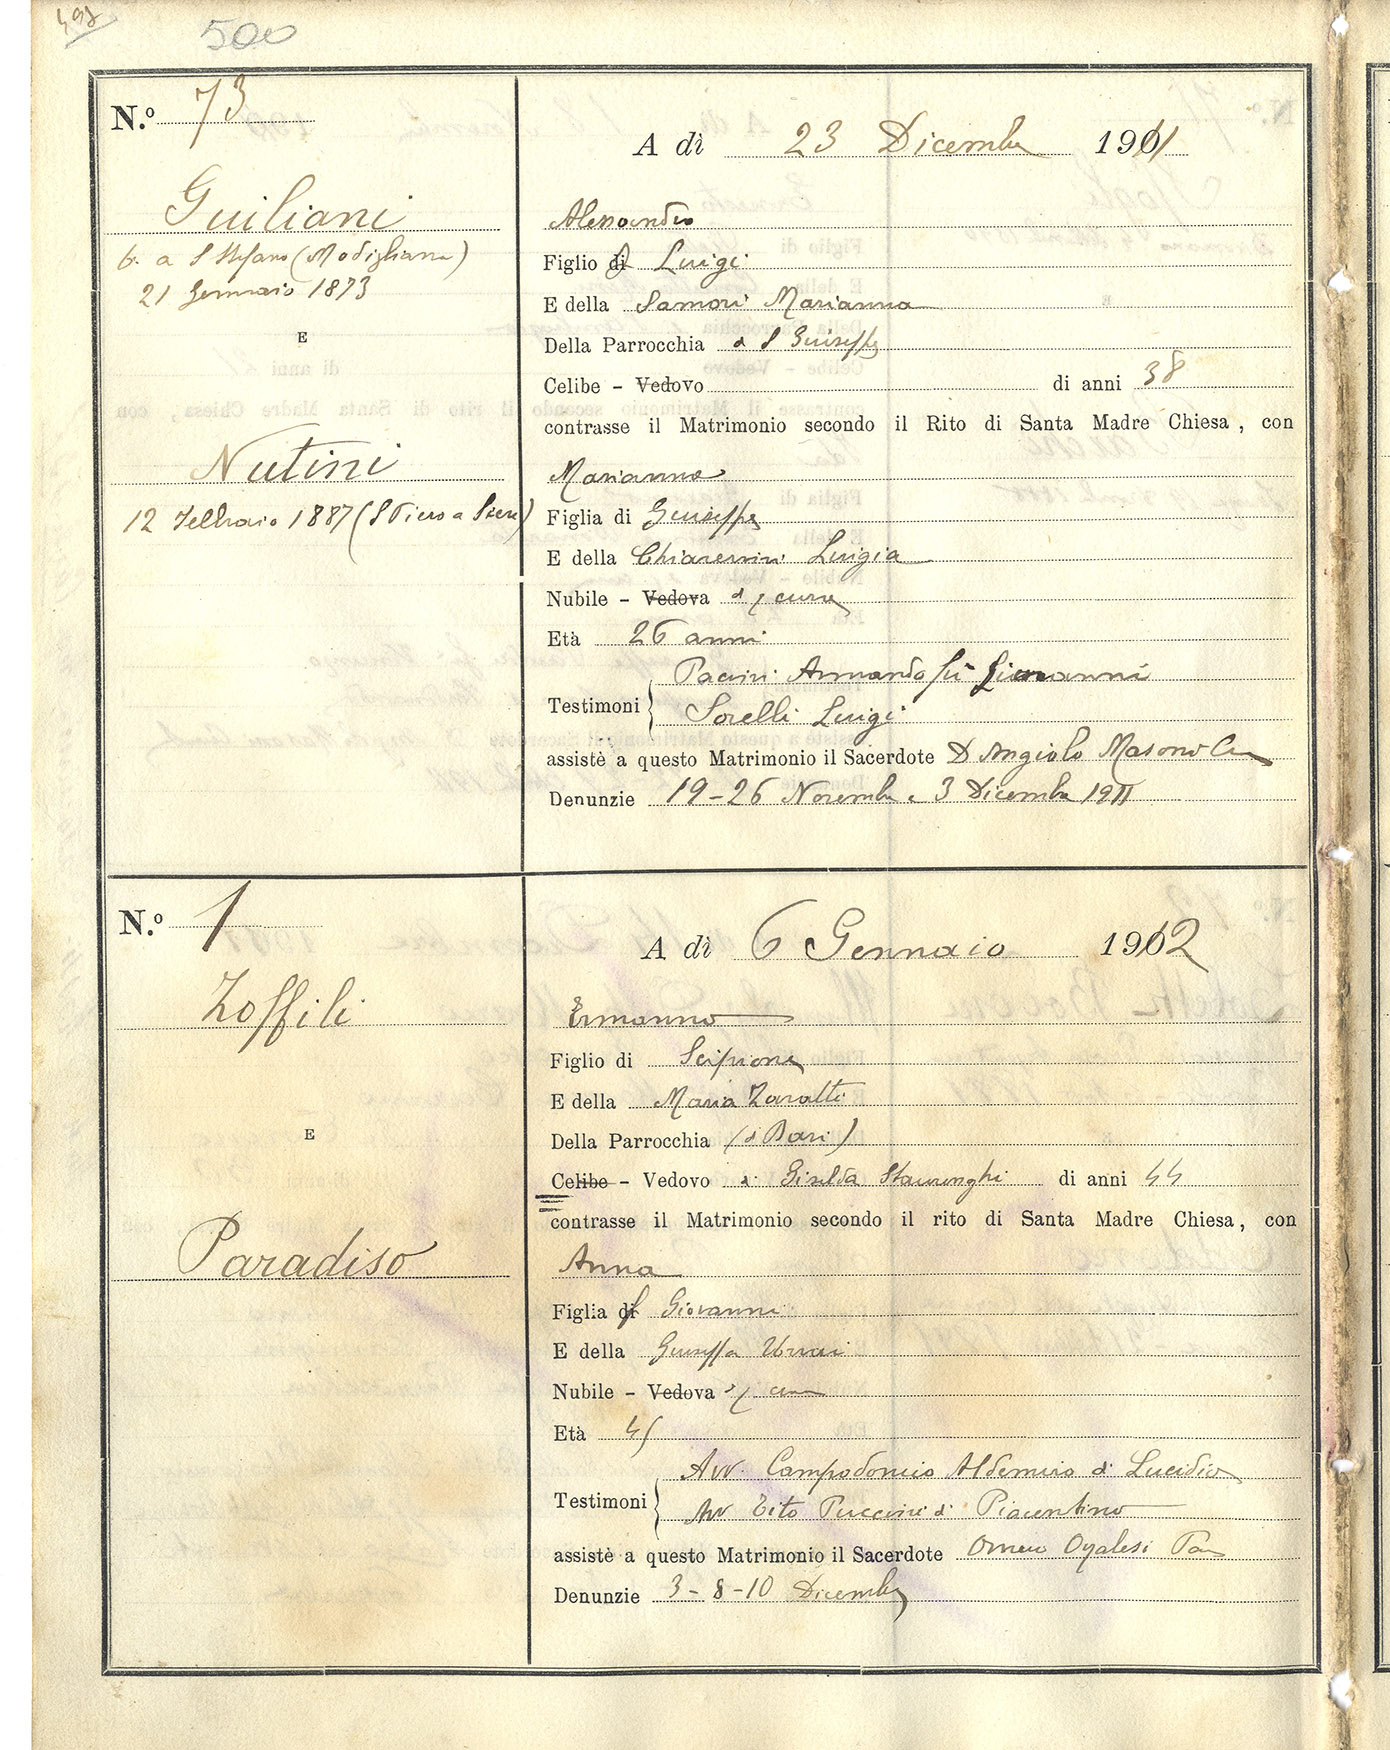 500
N.º 73
A dì 23 Dicembre 1911
Guiliani
b. a S Stefano (Modigliana)
21 Gennaio 1873
E
Nutini
12 Febbraio 1887 (S Piero a Sieve)
Alessandro
Figlio di Luigi
E della Samorì Marianna
Della Parrocchia di S Giuseppe
Celibe - Vedovo di anni 38
contrasse il Matrimonio secondo il Rito di Santa Madre Chiesa, con
Marianna
Figlia di Giuseppe
E della Chiaremini Luigia
Nubile - Vedova di q cura
Età 26 anni
Testimoni { Pacini Armando fu Giovanni
Sorelli Luigi
assistè a questo Matrimonio il Sacerdote D Angiolo Masoni
Denunzie 19-26 Novembre e 3 Dicembre 1911
N.º 1
A dì 6 Gennaio 1912
Zoffili
E
Paradiso
Ermanno
Figlio di Scipione
E della Maria Zaratti
Della Parrocchia (di Bari)
Celibe - Vedovo di Giselda Staurenghi di anni 44
contrasse il Matrimonio secondo il rito di Santa Madre Chiesa, con
Anna
Figlia di Giovanni
E della Giuseppa
Nubile - Vedova
Età 45
Testimoni { Avv. Campodonico Aldemiro di Lucidio
Avv Tito Puccini di Piacentino
assistè a questo Matrimonio il Sacerdote
Denunzie 3-8-10 Dicembre